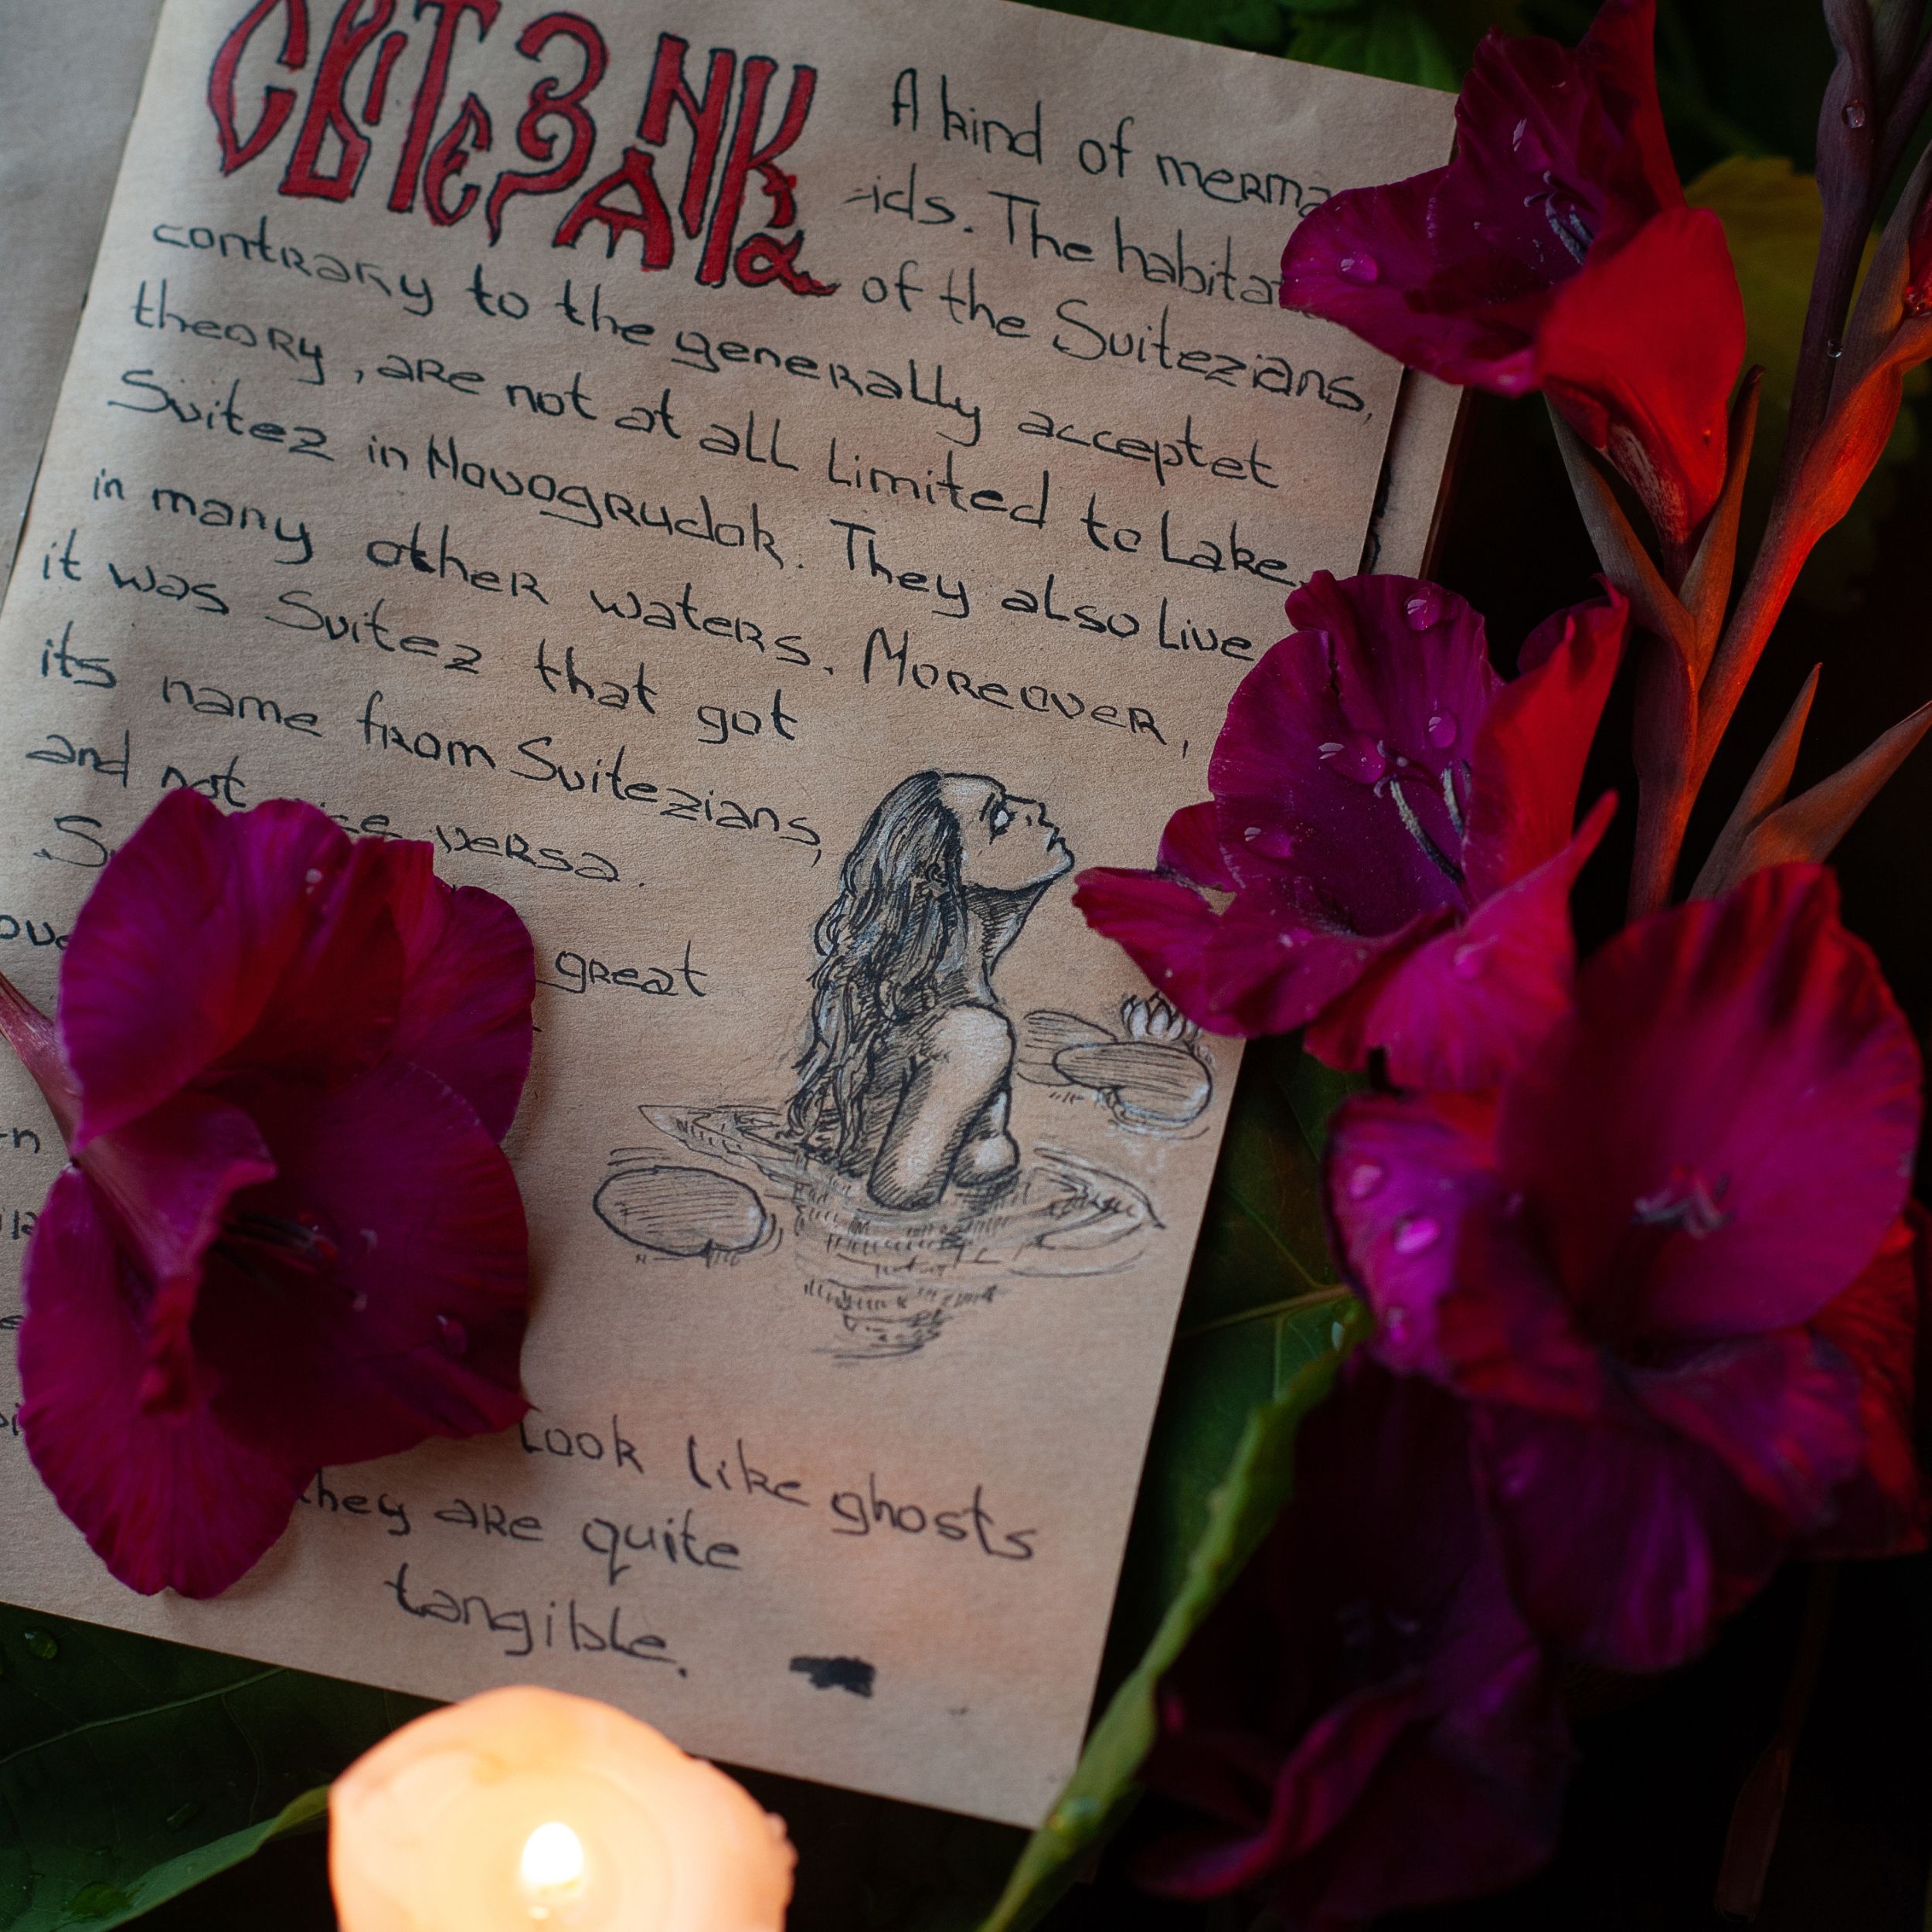 СВИТЕЗЯНКА
A kind of merma
-ids. The
of the Svitezians,
contrary to the generally acceptet
theory, are not at all limited to Lake
Svitez in Novogrudok. They also live
in many other waters. Moreover,
it was Svitez that got
its name from Svitezians,
and not versa.
great
Look like ghosts
they are quite
tangible.